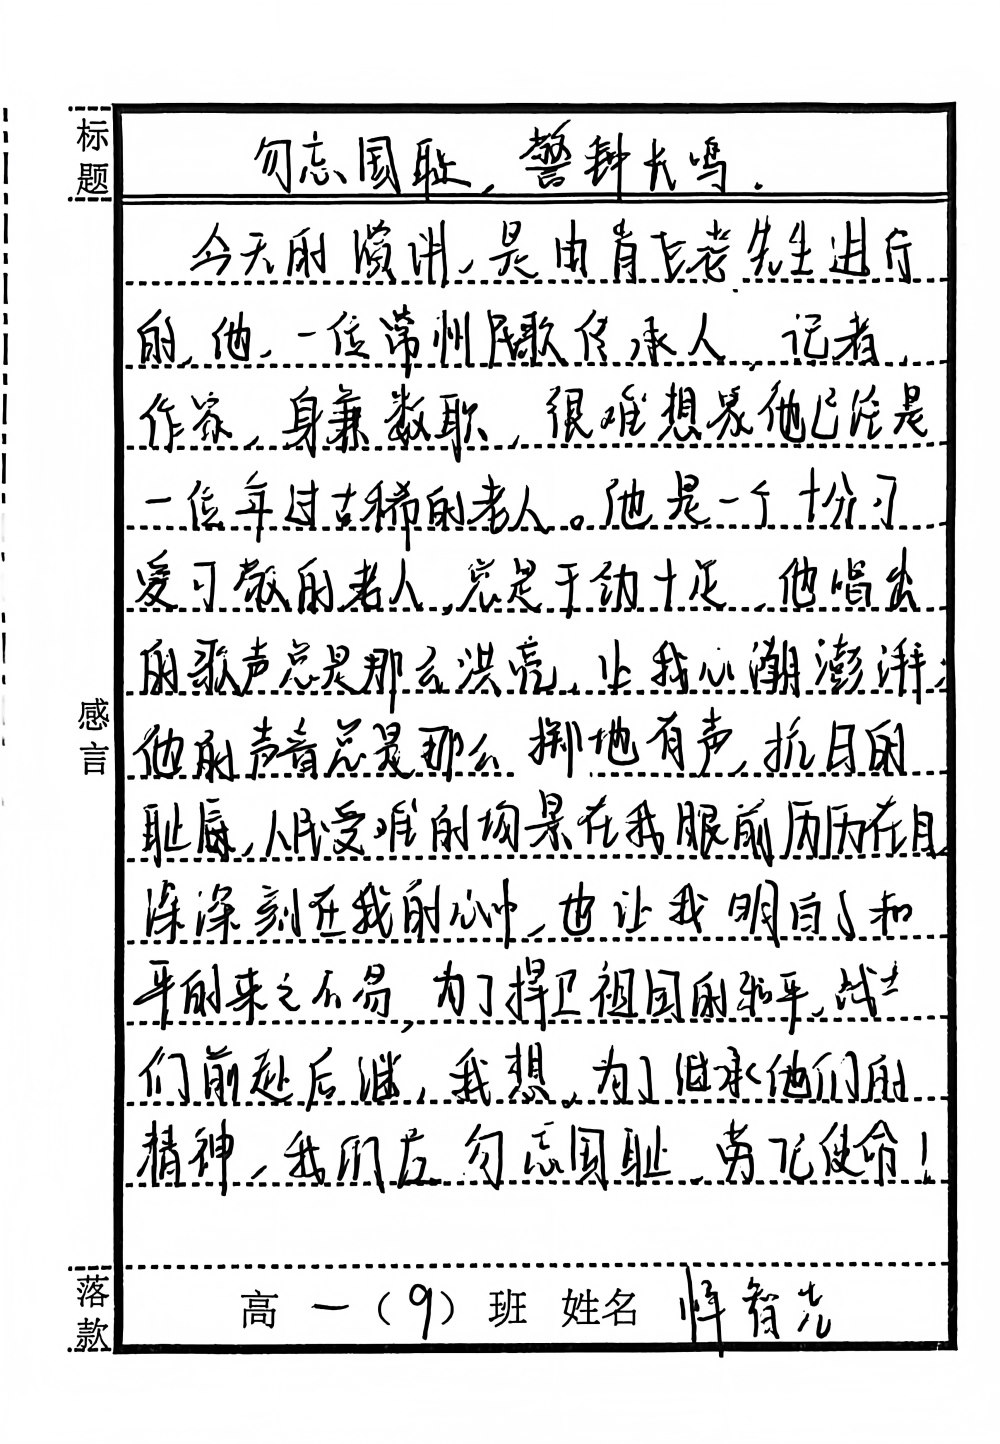 标题
勿忘国耻，警钟长鸣.
今天的演讲，是由肖飞老先生进行
的，他，一位常州民歌传承人，记者，
作家，身兼数职，很难想象他已经是
一位年过古稀的老人。他是一个十分可
爱可敬的老人，总是干劲十足，他唱出
的歌声总是那么洪亮，让我心潮澎湃；
他的声音总是那么掷地有声，抗日的
耻辱，人民受难的场景在我眼前历历在目，
深深刻在我的心中，也让我明白了和
平的来之不易，为了捍卫祖国的和平，战士
们前赴后继，我想，为了继承他们的
精神，我们应勿忘国耻，勇记使命！
感言
落款
高一（9）班 姓名 恽智